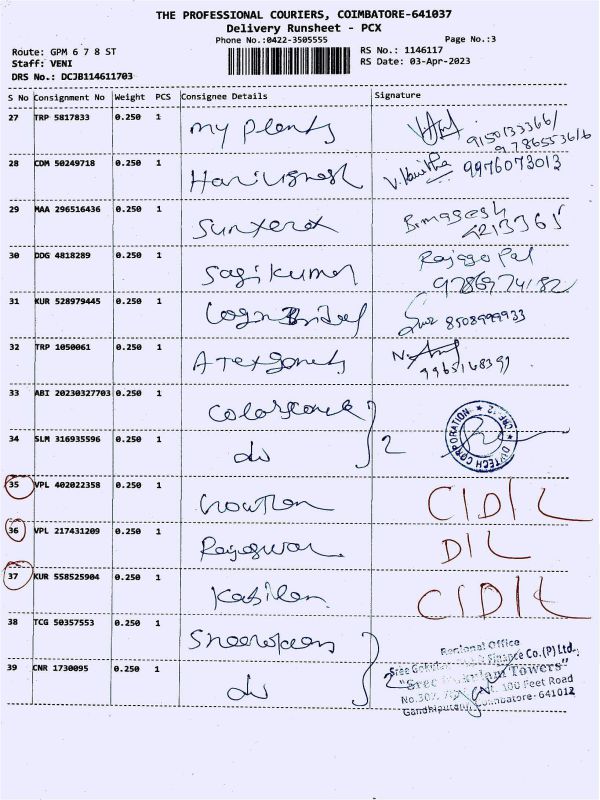 THE PROFESSIONAL COURIERS, COIMBATORE-641037
Delivery Runsheet - PCX
Phone No.:0422-3505555 Page No.:3
Route: GPM 6 7 8 ST RS No.: 1146117
Staff: VENI RS Date: 03-Apr-2023
DRS No.: DCJB114611703
S No Consignment No Weight PCS Consignee Details Signature
27 TRP 5817833 0.250 1 my plants
28 CDM 50249718 0.250 1 9976073013
29 MAA 296516436 0.250 1 Sunxerox
30 DDG 4818289 0.250 1 Sagikumar Rajago Pal
9786974182
31 KUR 528979445 0.250 1 8508999933
32 TRP 1050061 0.250 1
33 ABI 20230327703 0.250 1
34 SLM 316935596 0.250 1 do 2
35 VPL 402022358 0.250 1 C/D/L
36 VPL 217431209 0.250 1 Rajeswari D/L
37 KUR 558525904 0.250 1 Kabilan C/D/L
38 TCG 50357553 0.250 1
39 CNR 1730095 0.250 1 do 2
Regional Office
Finance Co.(P) Ltd.
Towers"
100 Feet Road
Coimbatore-641012